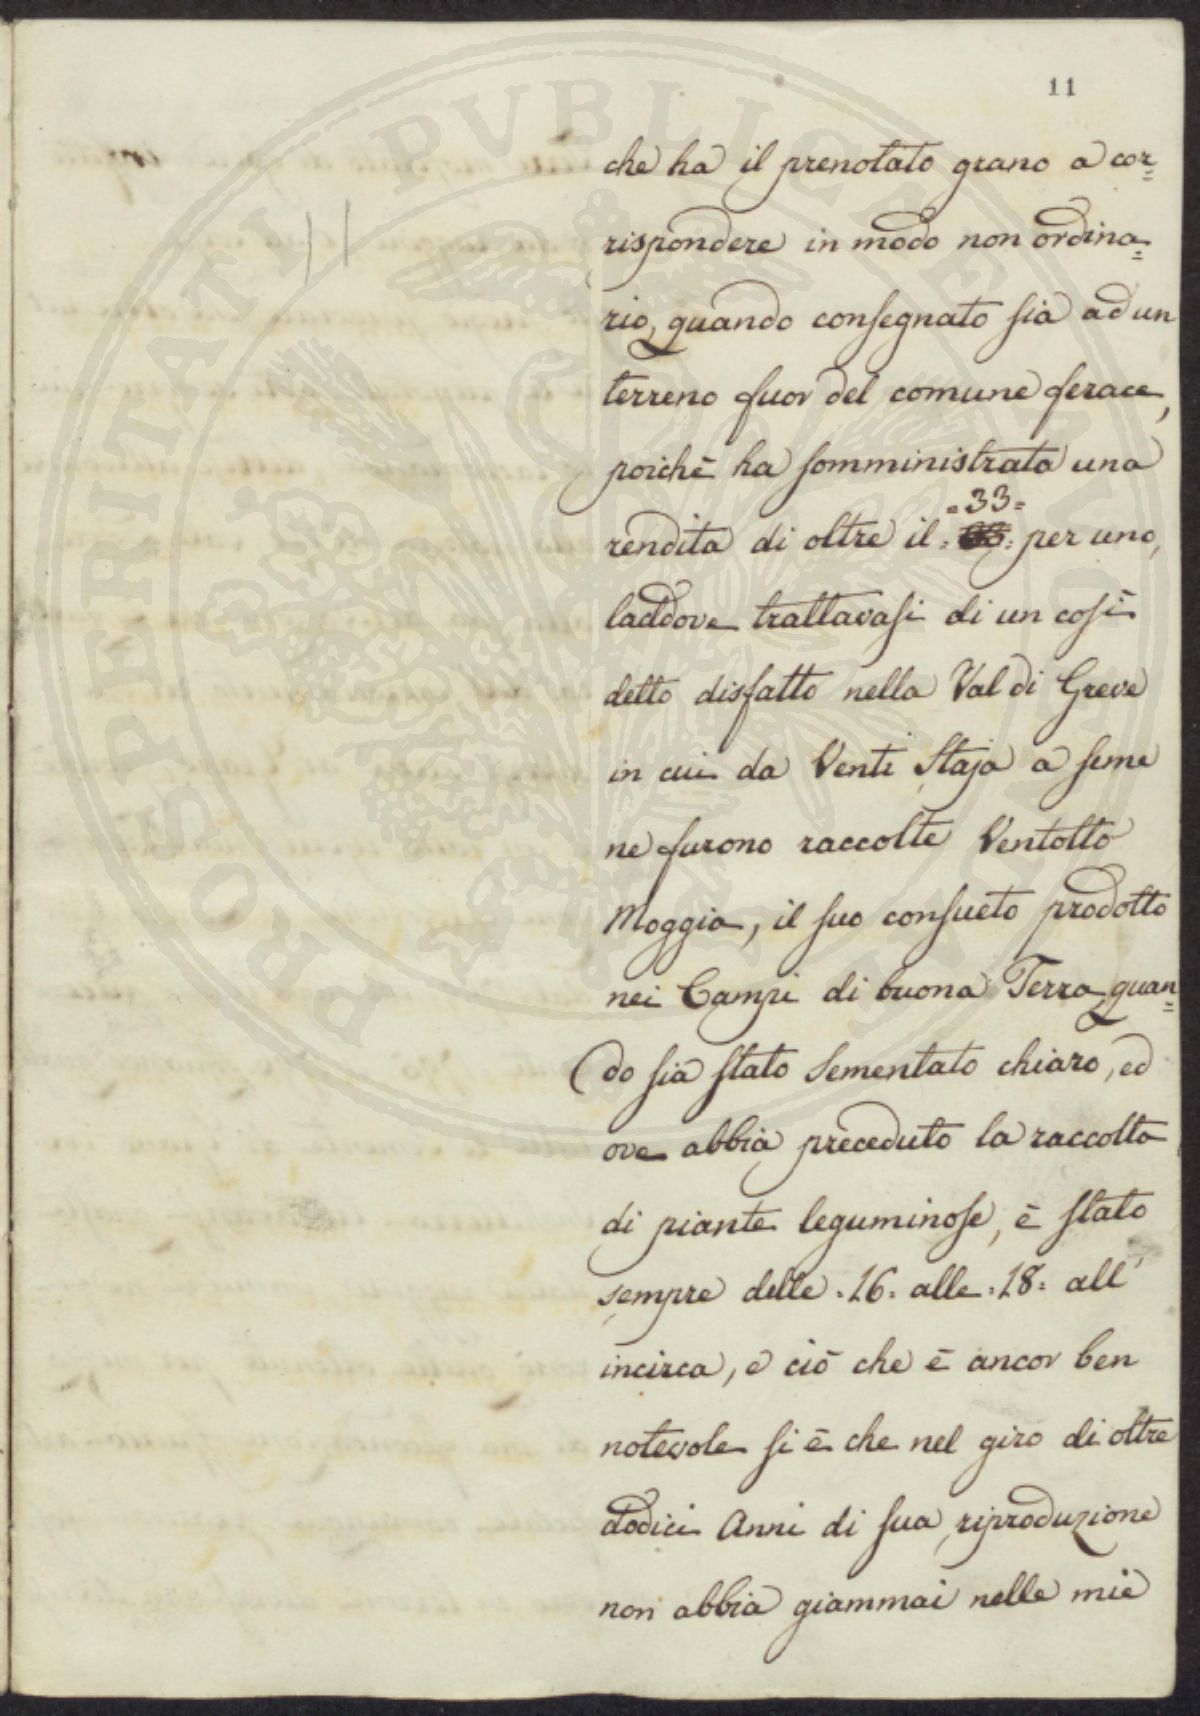 11
che ha il prenotato grano a cor=
rispondere in modo non ordina=
rio, quando consegnato sia ad un
terreno fuor del comune ferace,
poichè ha somministrata una
=33=
rendita di oltre il = = per uno,
laddove trattavasi di un così
detto disfatto nella Val di Greve
in cui da Venti Staja a seme
ne furono raccolte Ventotto
Moggia, il suo consueto prodotto
nei Campi di buona Terra quan=
do sia stato sementato chiaro, ed
ove abbia preceduto la raccolta
di piante leguminose, è stato
sempre delle =16= alle =18= all'
incirca, e ciò che è ancor ben
notevole si è che nel giro di oltre
dodici Anni di sua riproduzione
non abbia giammai nelle mie
PROSPERITATI PVBLICAE AVGENDAE